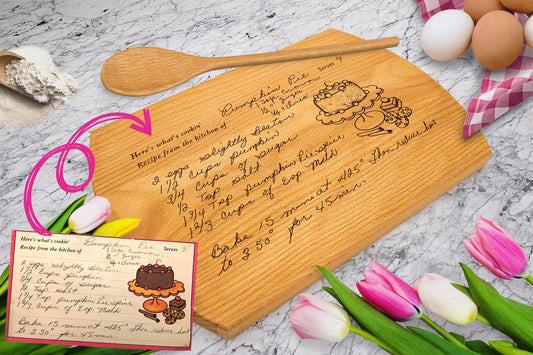 Pumpkin Pie
Serves 9
1 tsp Cinnamon
½ " Ginger
¼ " cloves
Here's what's cookin'
Recipe from the kitchen of
2 eggs slightly beaten
1½ Cups Pumpkin
3/4 Cups of Sugar
½ Tsp Salt
1 3/4 Tsp Pumpkin Pie spice
1 2/3 Cups of Evp. Milk
Bake 15 mins at 425° then reduce heat
to 350° for 45 min.
Here's what's cookin'
Pumpkin Pie
Serves 9
Recipe from the kitchen of
1 tsp Cinnamon
½ " Ginger
¼ " cloves
2 eggs slightly beaten
1½ Cups Pumpkin
3/4 Cups of Sugar
½ Tsp Salt
1 3/4 Tsp Pumpkin Pie spice
1 2/3 Cups of Evp. Milk
Bake 15 mins at 425° then reduce heat
to 350° for 45 min.